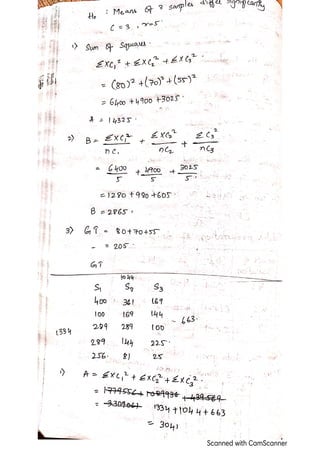 H₀ : Means of 3 samples differ significantly
C = 3, r = 5
1) Sum of Squares
ΣXC₁² + ΣXC₂² + ΣXC₃²
= (80)² + (70)² + (55)²
= 6400 + 4900 + 3025
A = 14325
2) B = ΣXC₁² / nC₁ + ΣXC₂² / nC₂ + ΣC₃² / nC₃
= 6400/5 + 4900/5 + 3025/5
= 1280 + 980 + 605
B = 2865
3) GT = 80 + 70 + 55
= 205
GT
1044
S₁ S₂ S₃
400 361 169
100 169 144
289 289 100 - 663
1334
289 144 225
256 81 25
1) A = ΣXC₁² + ΣXC₂² + ΣXC₃²
= 1334 + 1044 + 663
= 3041
Scanned with CamScanner